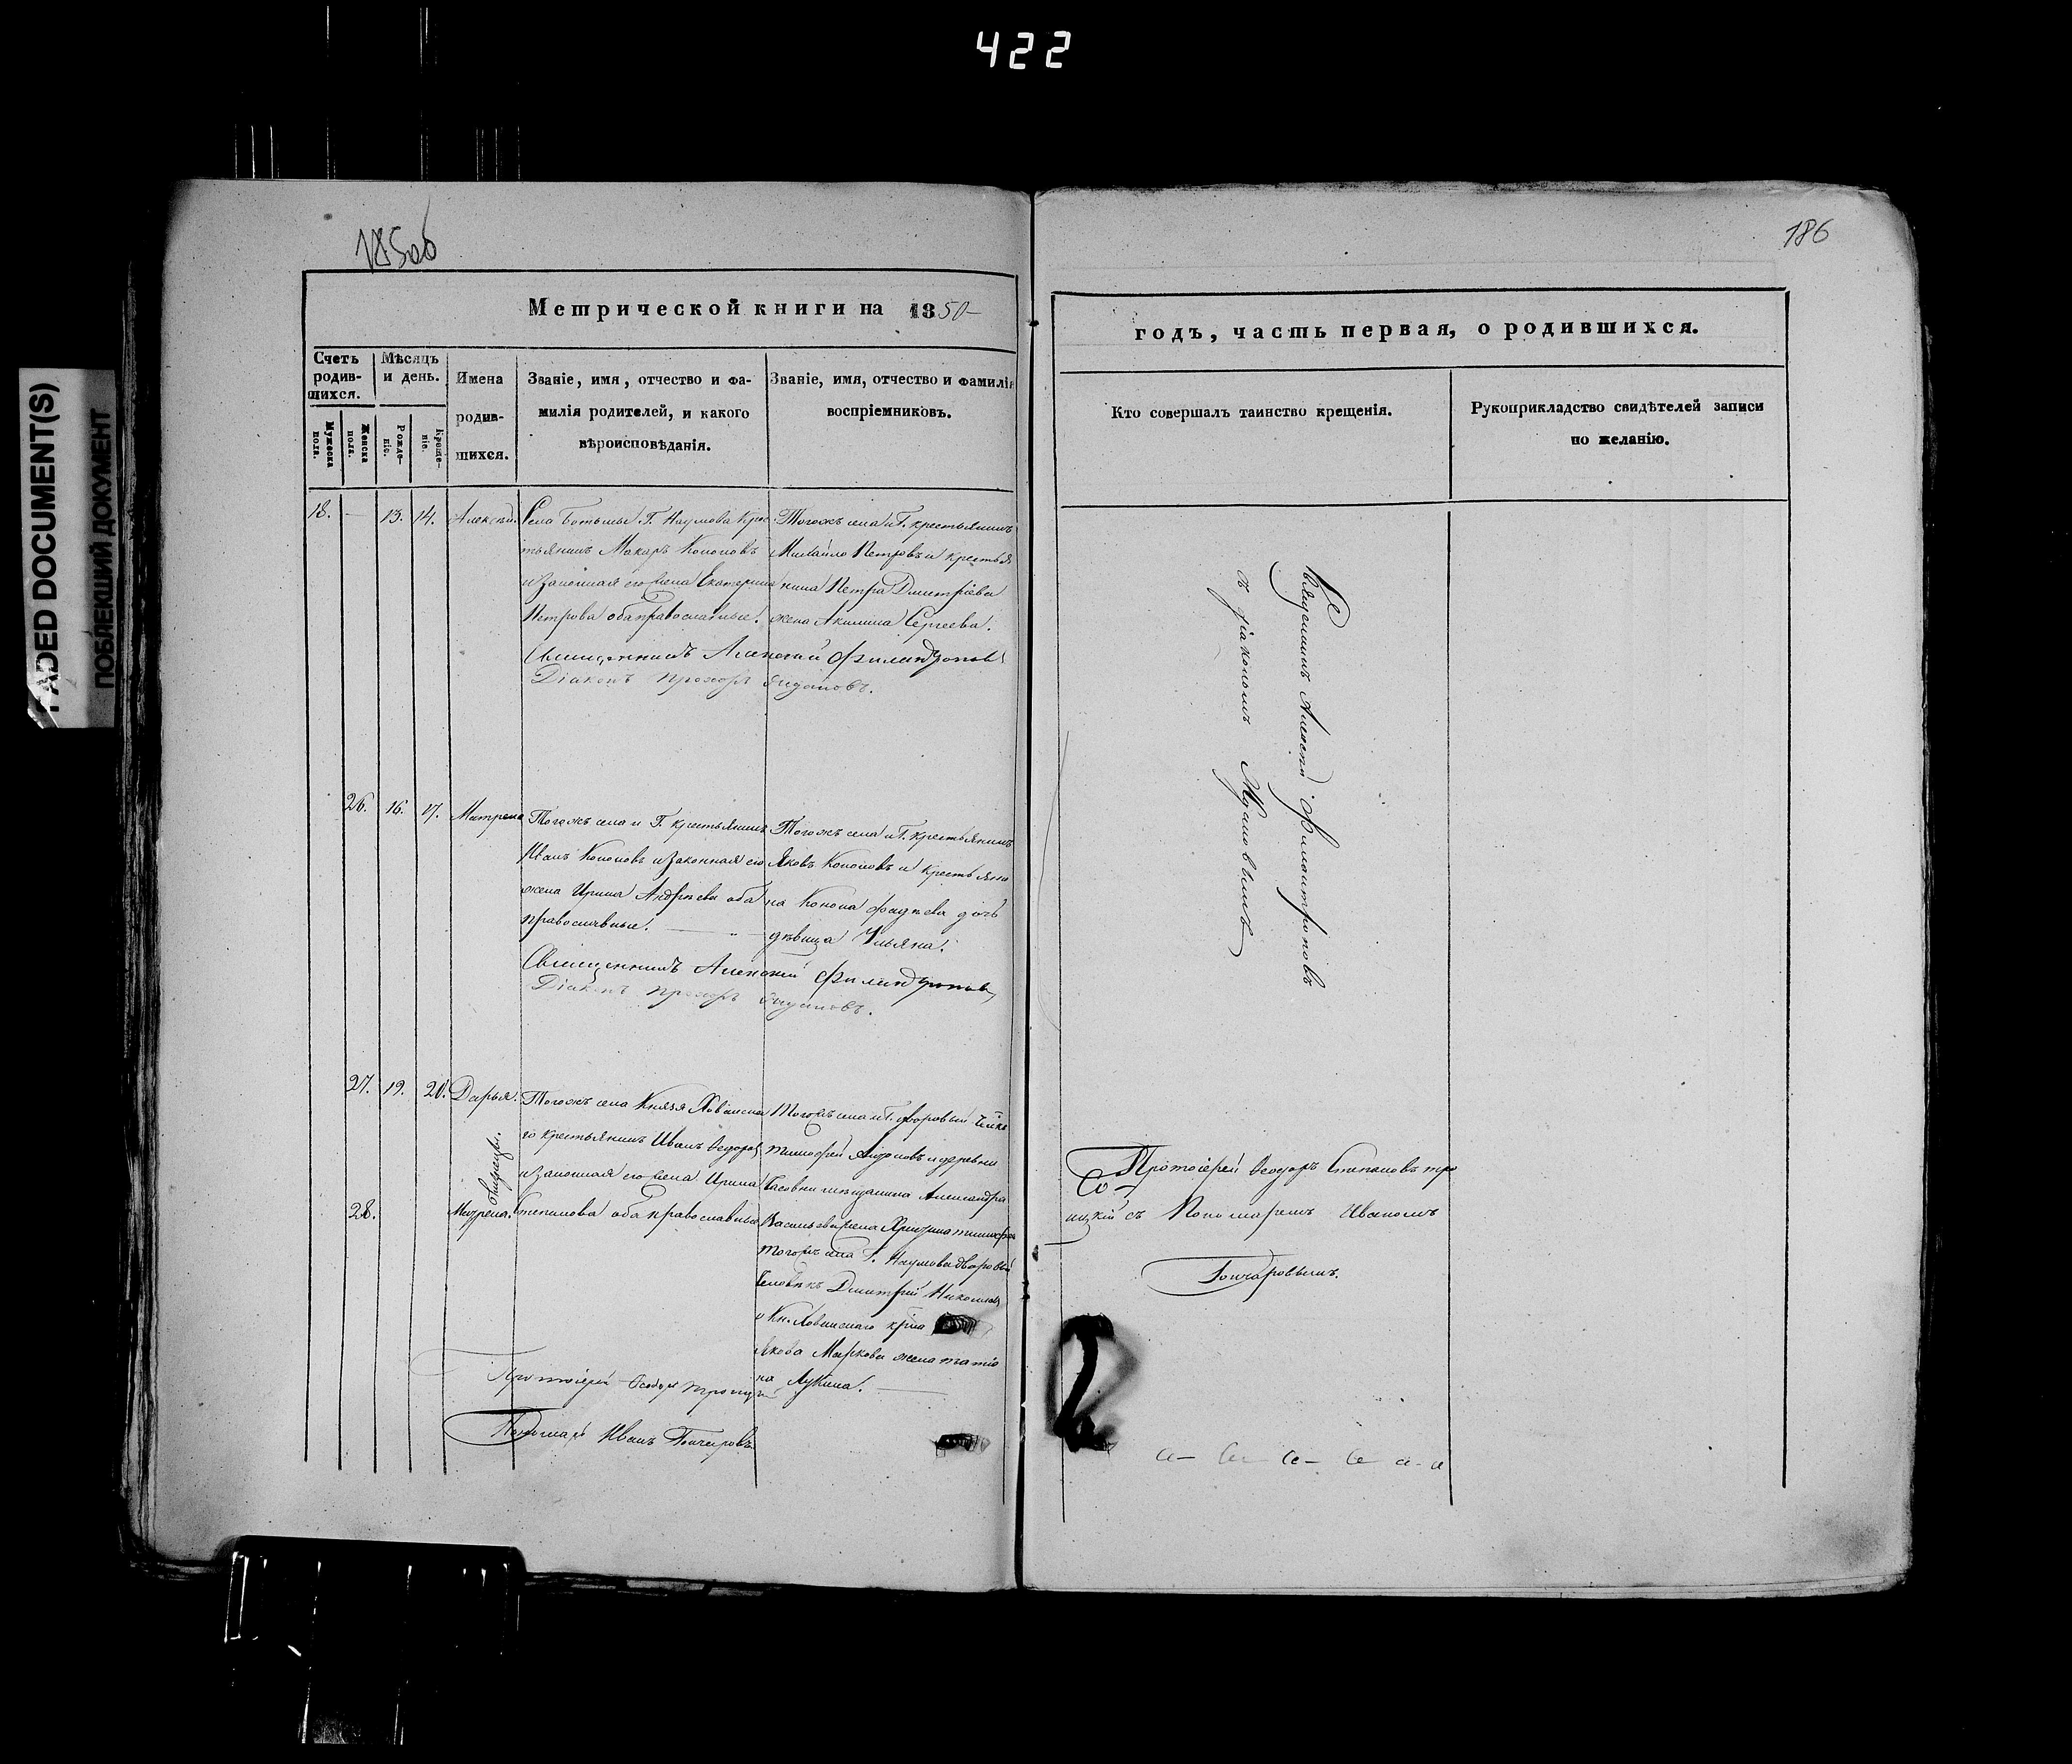 422
FADED DOCUMENT(S)
ПОБЛЕКШИЙ ДОКУМЕНТ
185об
Метрической книги на 1850
Счетъ родившихся.
Мужеска пола.
Женска пола.
Мѣсяцъ и день.
Рожденіе.
Крещеніе.
Имена
родив-
шихся.
Званіе, имя, отчество и фа-
милія родителей, и какого
вѣроисповѣданія.
Званіе, имя, отчество и фамилія
воспріемниковъ.
18. — 13. 14. Алексѣй.
Села Г. Наумова крес-
тьянинъ Макаръ Кононовъ
и законная его жена Екатерина
Петрова оба православные.
Тогожъ села и Г. крестьянинъ
Михайло Петровъ и крестья
нина Петра Дмитріева
жена Акилина Сергеева.
Священникъ Алексій
Діаконъ Прохоръ
26. 16. 17. Матрена
Тогожъ села и Г. крестьянинъ
Иванъ Кононовъ и законная его
жена Ирина Андреева оба
православные.
Тогожъ села и Г. крестьянинъ
Яковъ Кононовъ и крестьяни
на Конона Фадѣева дочь
дѣвица Ульяна.
Священникъ Алексій
Діаконъ Прохоръ
27. 19. 20. Дарья.
близнецы.
28. Матрена.
Тогожъ села Князя Хованска
го крестьянинъ Иванъ Ѳедоровъ
и законная его жена Ирина
Степанова оба православные
Тогожъ села и Г. дворовый
Тимофей и деревни
Александра
Васильева жена
Тогожъ села Г. Наумова дворовый
человѣкъ Дмитрій Николаевъ
и Кн. Хованскаго
Якова Маркова жена Татія
на Лукина.
Протоіерей Ѳеодоръ Троицкій
Пономарь Иванъ Гончаровъ
186
годъ, часть первая, о родившихся.
Кто совершалъ таинство крещенія.
Рукоприкладство свидѣтелей записи
по желанію.
Священникъ Алексій
съ діакономъ
Протоіерей Ѳеодоръ Степановъ Тро
ицкій съ Пономаремъ Иваномъ
Гончаровымъ.
2